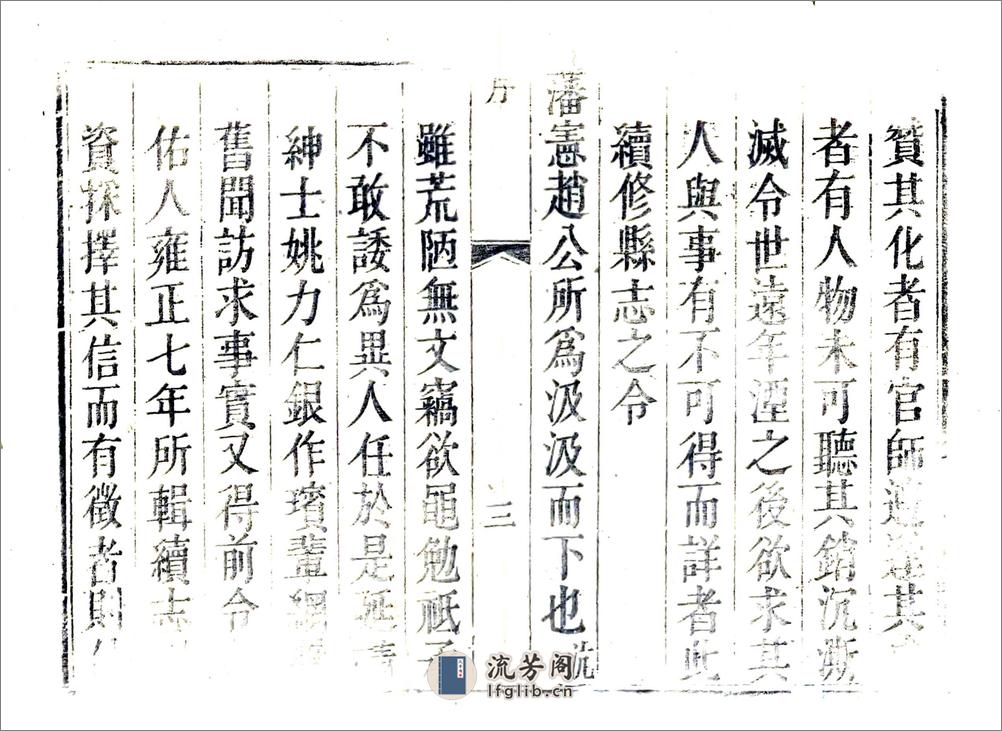 贊其化者有官師道其
者有人物未可聽其銷沉澌
滅令世遠年湮之後欲求其
人與事有不可得而詳者此
續修縣志之令
藩憲趙公所爲汲汲而下也
序
三
雖荒陋無文竊欲黽勉祇承
不敢諉爲異人任於是延請
紳士姚力仁銀作璸輩網
舊聞訪求事實又得前令
佑人雍正七年所輯續志
資採擇其信而有徵者則
流芳阁
lfglib.cn